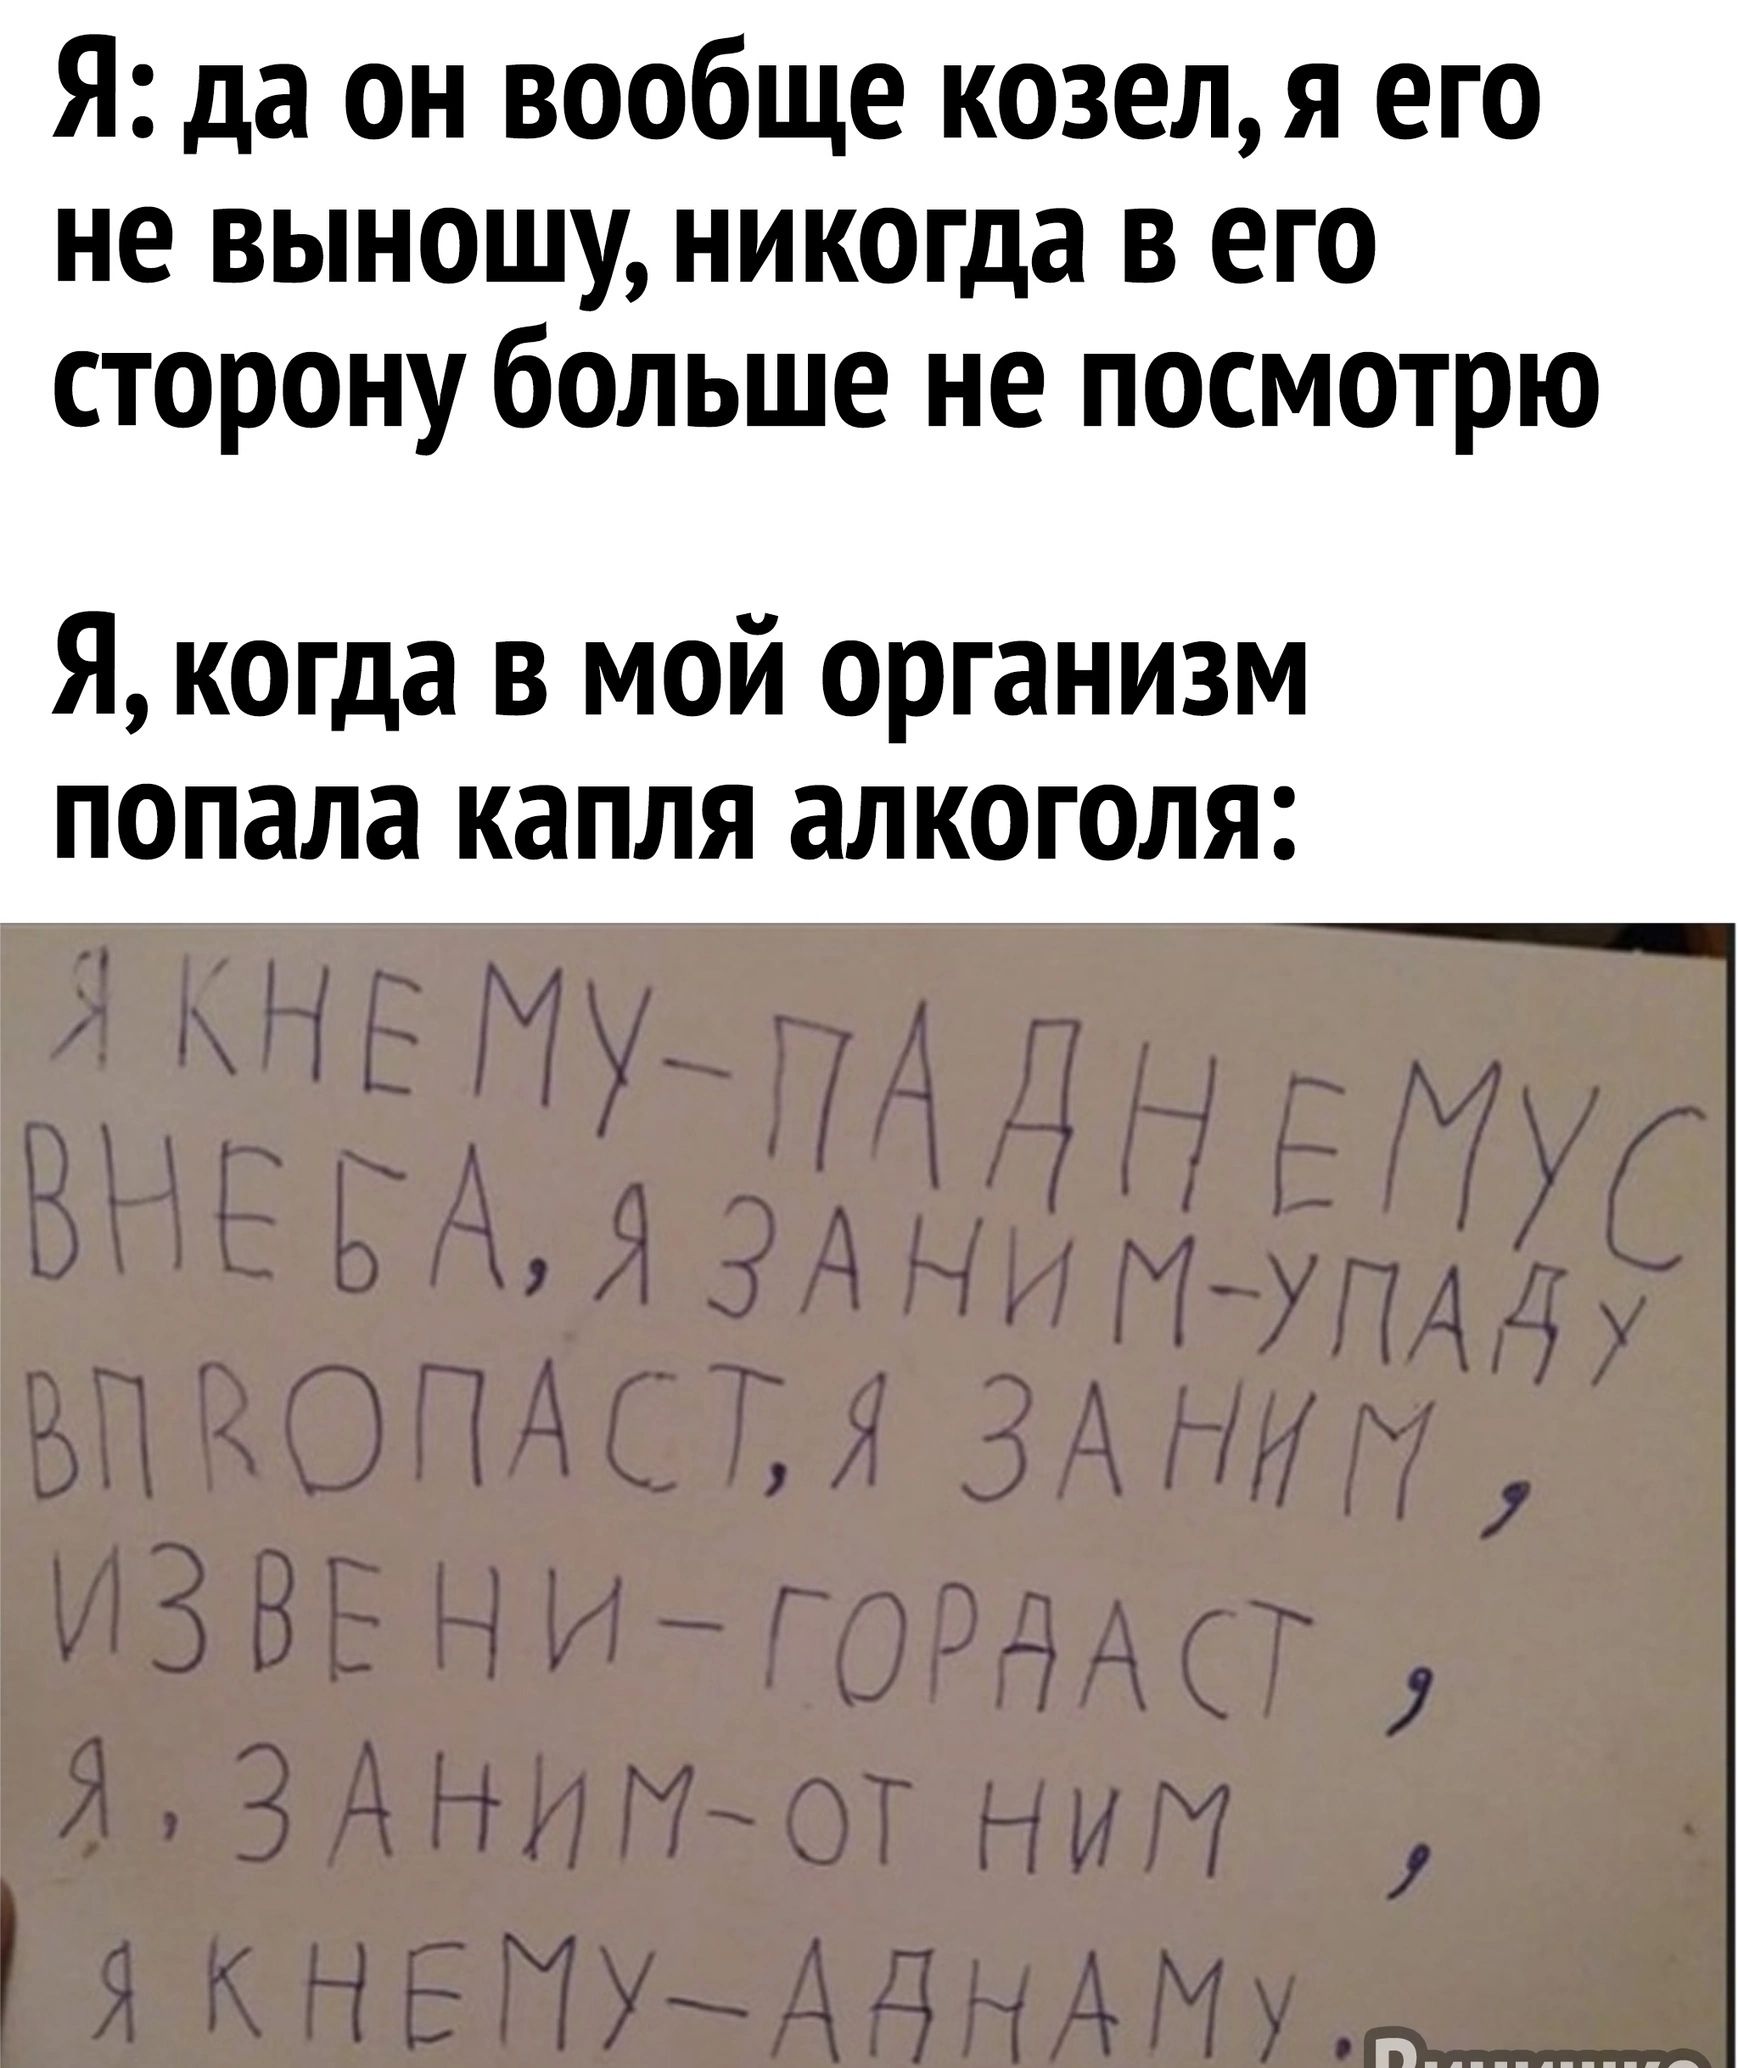 Я: да он вообще козел, я его
не выношу, никогда в его
сторону больше не посмотрю
Я, когда в мой организм
попала капля алкоголя:
Я КНЕМУ-ПАДНЕМУС
ВНЕБА, Я ЗАНИМ-УПАДУ
ВПRОПАСТ, Я ЗАНИМ,
ИЗВЕНИ-ГОРДАСТ,
Я, ЗАНИМ-ОТ НИМ,
Я КНЕМУ-АДНАМУ.